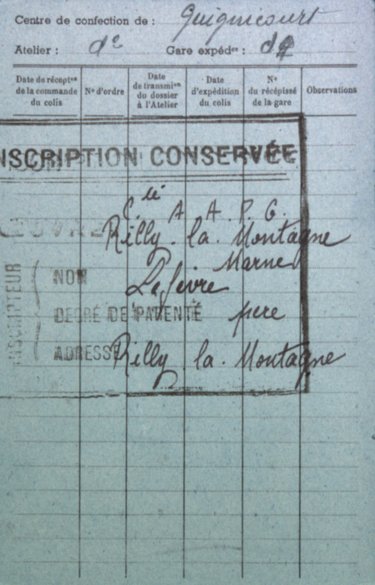 Centre de confection de : Guignicourt
Atelier : do Gare expédre : do
Date de récepton de la commande du colis
No d'ordre
Date de transmion du dossier à l'Atelier
Date d'expédition du colis
No du récépissé de la gare
Observations
NSCRIPTION CONSERVÉE
Cté A A P G.
Rilly-la-Montagne
Marne
INSCRIPTEUR
NOM Lefèvre
DEGRÉ DE PARENTÉ père
ADRESSE Rilly-la-Montagne